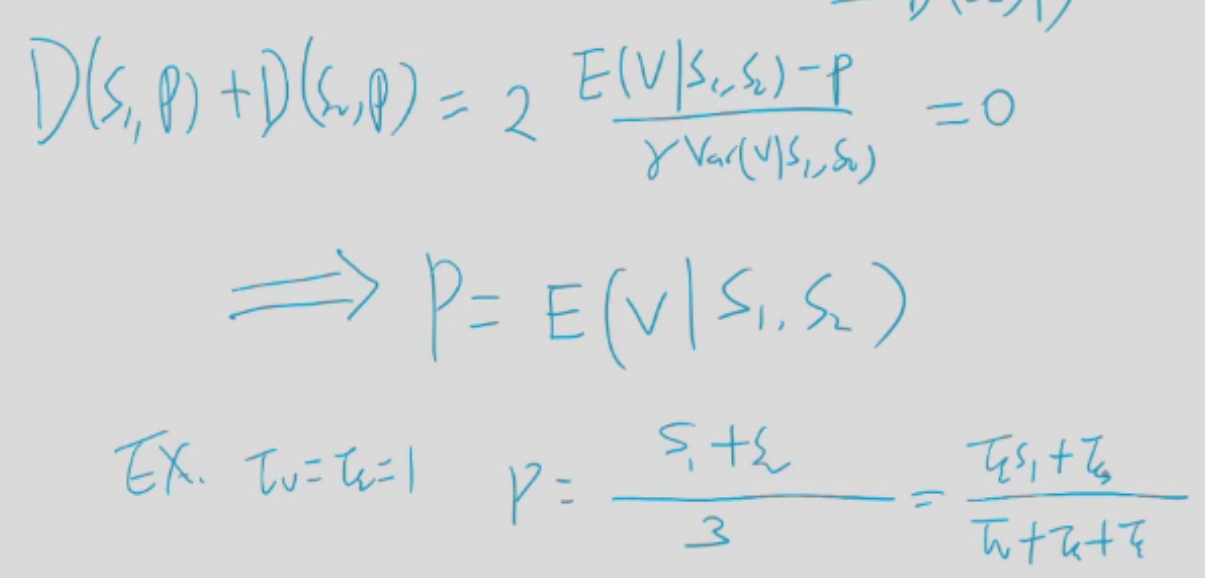 D(S₁,P)+D(S₂,P) = 2 E(V|S₁,S₂)-P / γVar(V|S₁,S₂) = 0
⟹ P = E(V|S₁,S₂)
EX. τᵥ=τ_ε=1 P = S₁+S₂ / 3 = τ_εS₁+τ_ε / τᵥ+τ_ε+τ_ε